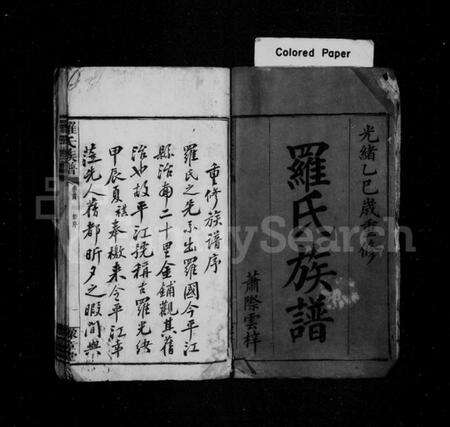 Colored Paper
光緒乙巳歲重修
羅氏族譜
蕭際雲梓
重修族譜序
羅氏之先系出羅國今平江
縣治南二十里金鋪觀其舊
治也故平江號稱古羅光緒
甲辰夏祺奉檄來令平江幸
蒞先人舊都昕夕之暇間與
羅氏族譜
FamilySearch